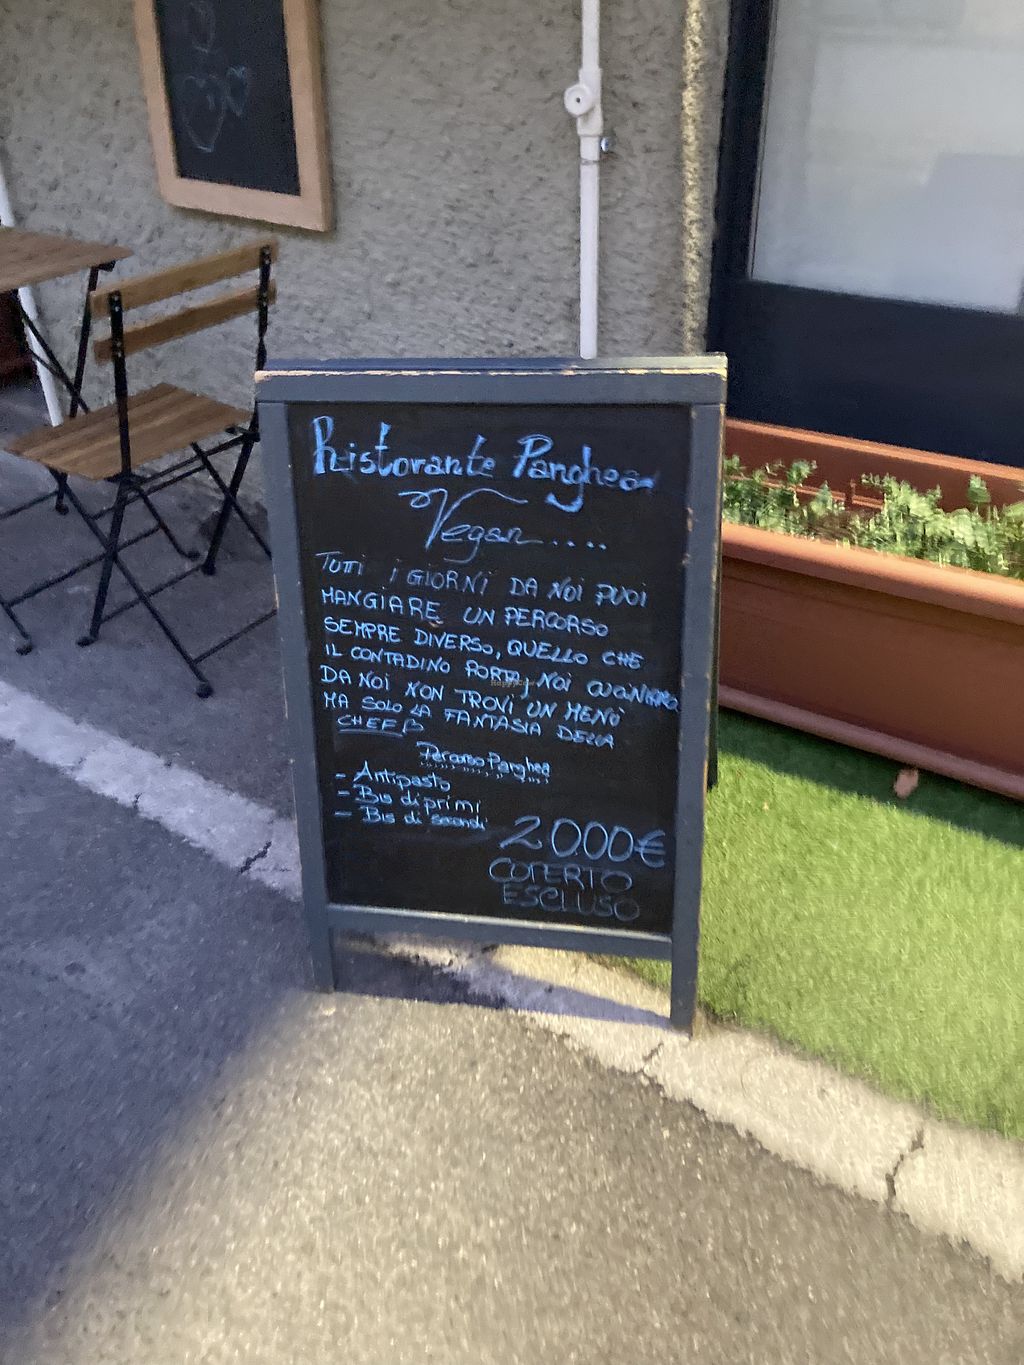 Ristorante Panghea
Vegan....
TUTTI I GIORNI DA NOI PUOI
MANGIARE UN PERCORSO
SEMPRE DIVERSO, QUELLO CHE
IL CONTADINO PORTA, NOI CUCINIAMO
DA NOI NON TROVI UN MENÙ
MA SOLO LA FANTASIA DELLA
CHEF
Percorso Panghea
- Antipasto
- Bis di primi
- Bis di secondi
20.00€
COPERTO
ESCLUSO